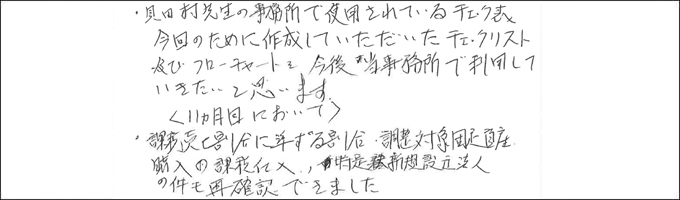 ・見田村先生の事務所で使用されているチェック表
今回のために作成していただいたチェックリスト
及びフローチャートを今後当事務所で利用して
いきたいと思います。
〈11カ月目において〉
・課税売上割合に準ずる割合・調整対象固定資産
購入の課税仕入、特定新規設立法人
の件も再確認できました